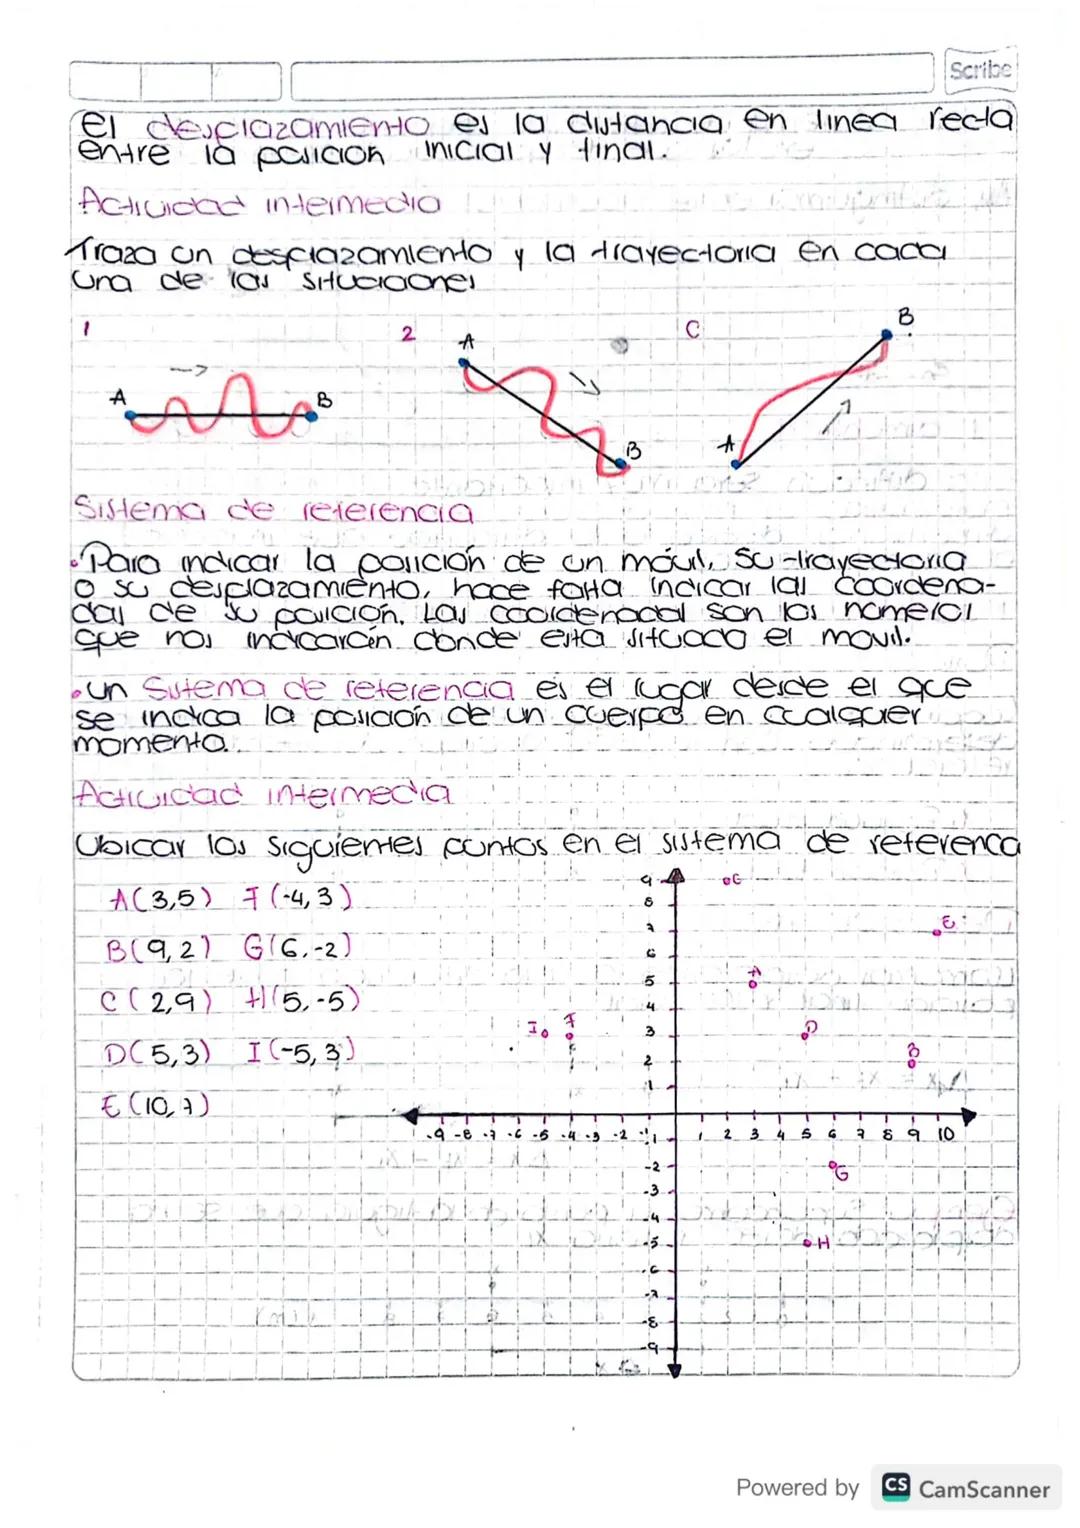 Scribe
El desplazamiento es la distancia en linea recta
entre la posicion inicial y final.
Actividad intermedia
Traza un desplazamiento y la trayectoria en cada
una de las situaciones
1 2 C
A B
A B
A B
Sistema de referencia
• Para indicar la posición de un móvil, su trayectoria
o su desplazamiento, hace falta indicar las coordena-
das de su posición. Las coordenadas son los números
que nos indicarán donde esta situado el movil.
• un Sistema de referencia es el lugar desde el que
se indica la posición de un cuerpo en cualquier
momento.
Actividad intermedia
Ubicar los siguientes puntos en el sistema de referenca
A(3,5) F(-4,3)
B(9,2) G(6,-2)
C(2,9) H(5,-5)
D(5,3) I(-5,3)
E(10,7)
9 C
8
7 E
6
5 A
4
3 I F D
2 B
1
-9 -8 -7 -6 -5 -4 -3 -2 -1 1 2 3 4 5 6 7 8 9 10
-2 G
-3
-4
-5 H
-6
-7
-8
-9
Powered by CS CamScanner